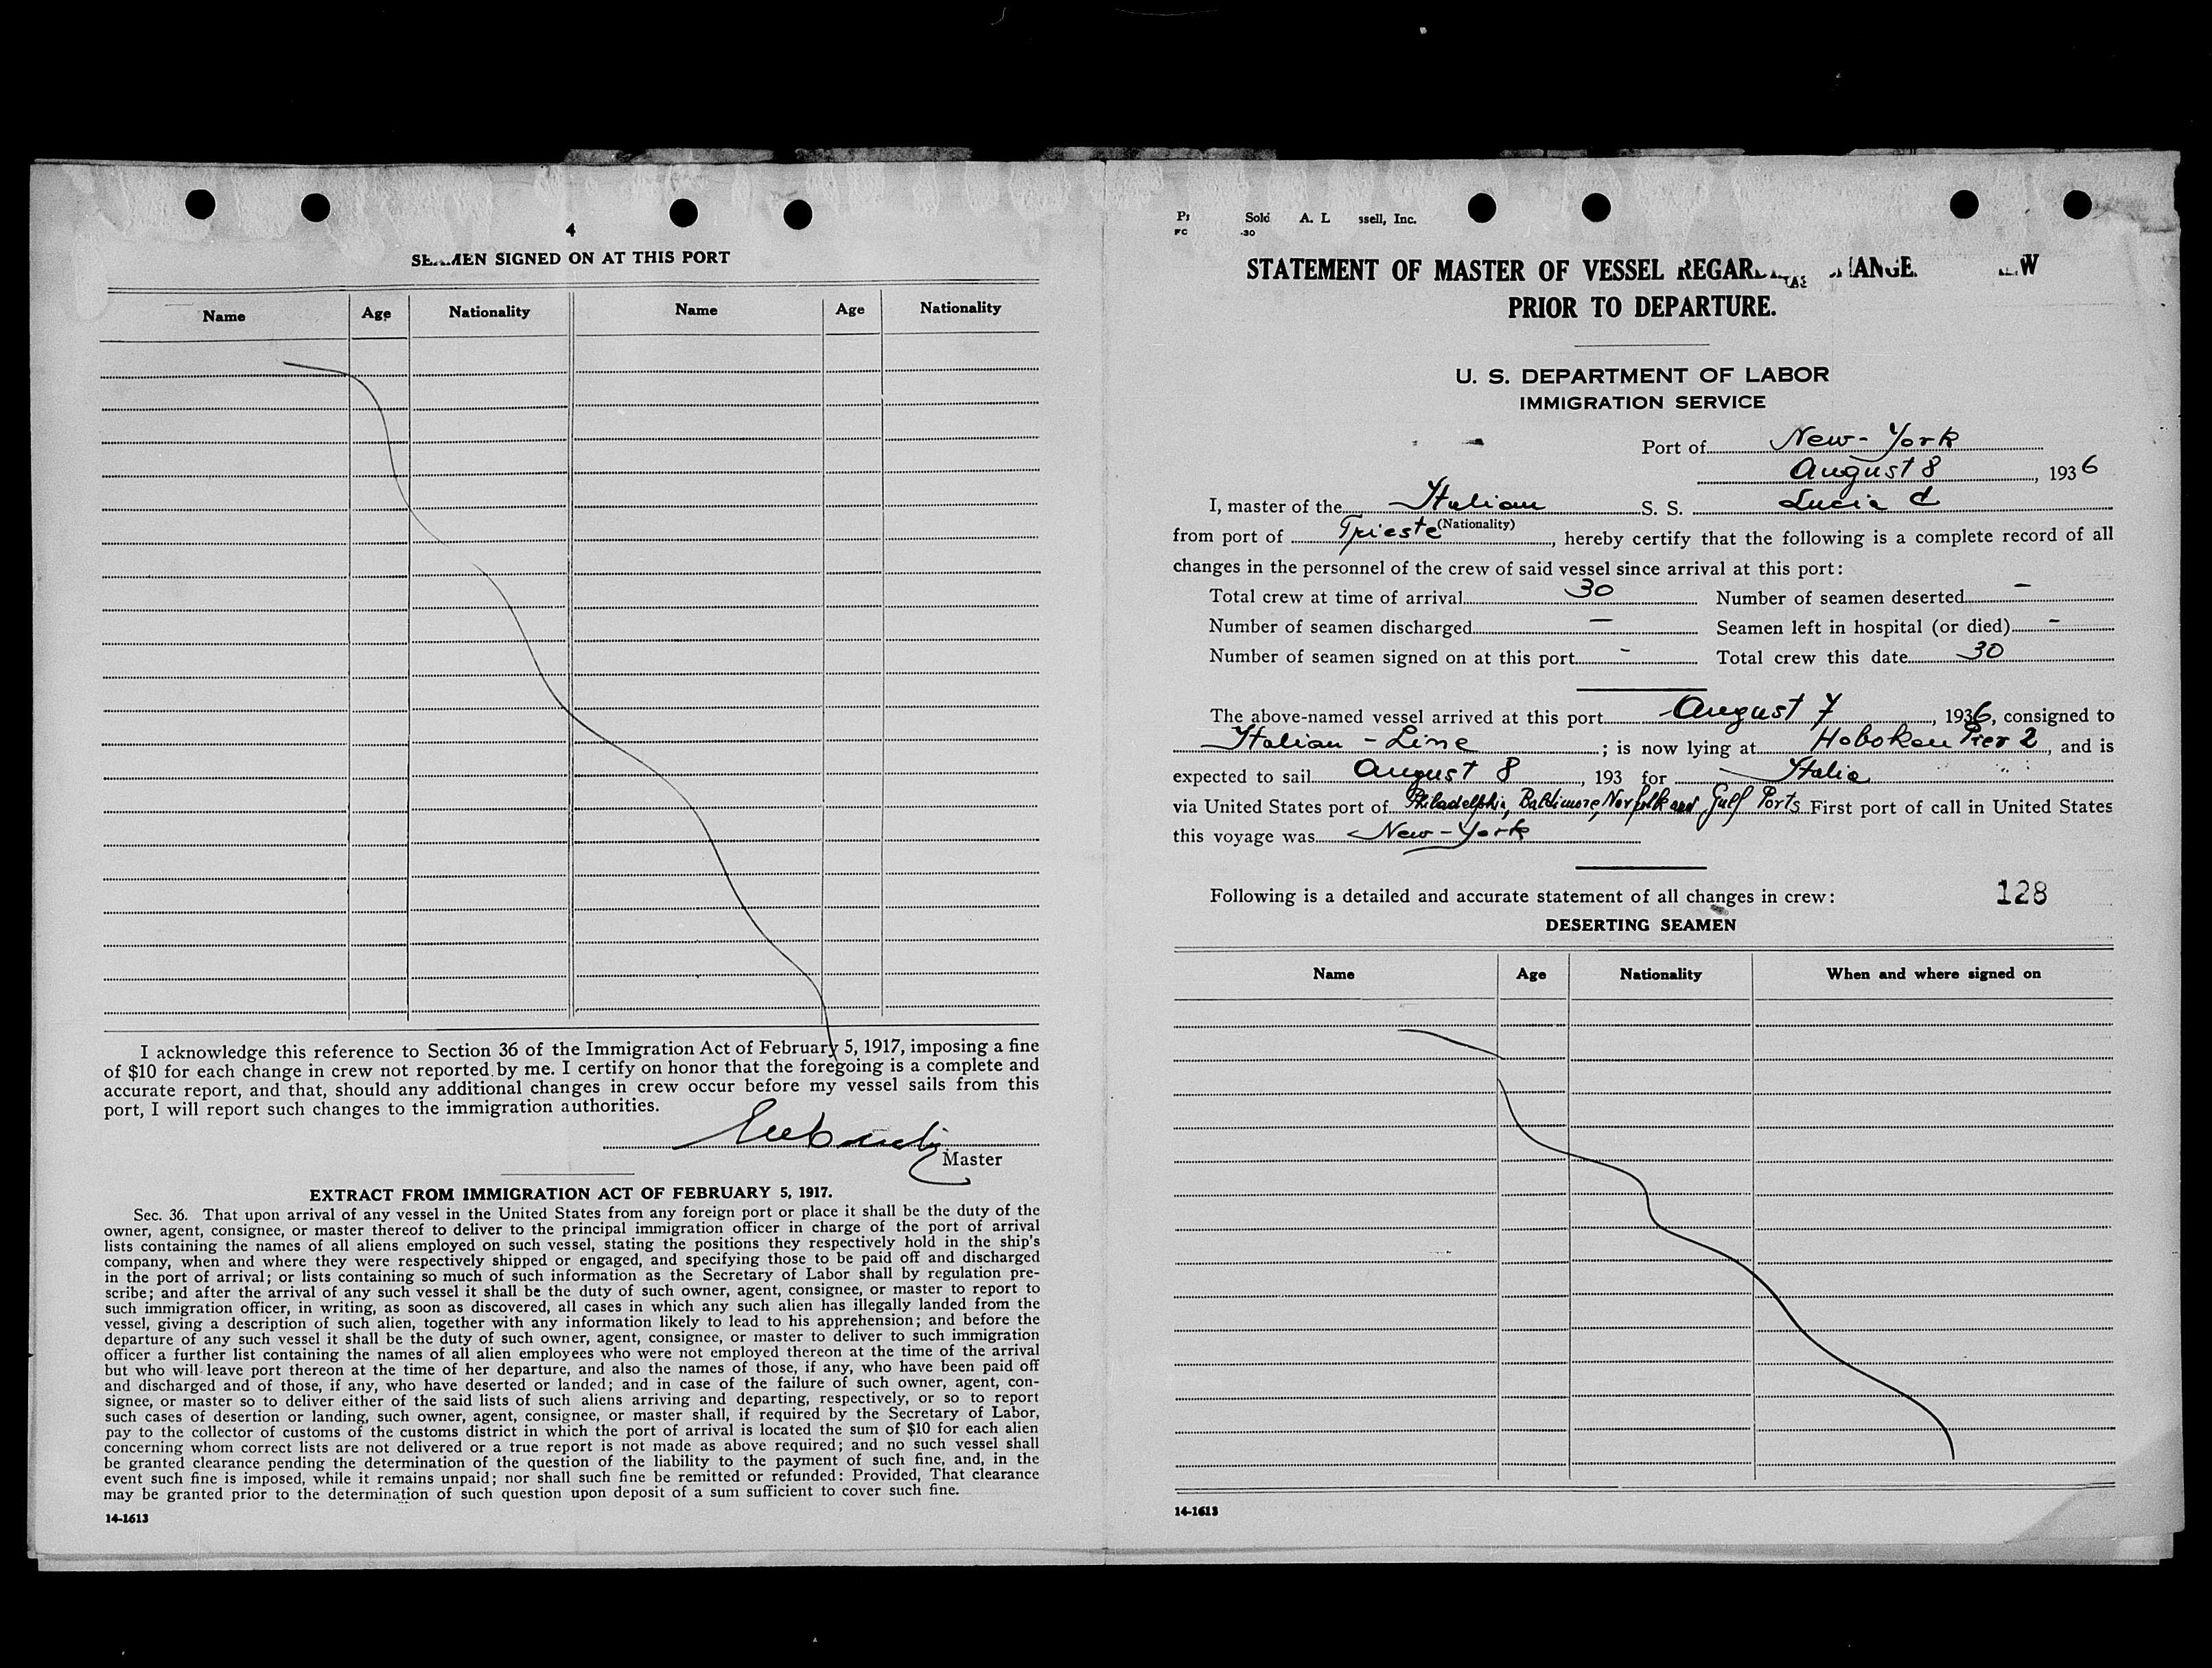 4
SEAMEN SIGNED ON AT THIS PORT
Name Age Nationality Name Age Nationality
I acknowledge this reference to Section 36 of the Immigration Act of February 5, 1917, imposing a fine
of $10 for each change in crew not reported by me. I certify on honor that the foregoing is a complete and
accurate report, and that, should any additional changes in crew occur before my vessel sails from this
port, I will report such changes to the immigration authorities.
Master
EXTRACT FROM IMMIGRATION ACT OF FEBRUARY 5, 1917.
Sec. 36. That upon arrival of any vessel in the United States from any foreign port or place it shall be the duty of the
owner, agent, consignee, or master thereof to deliver to the principal immigration officer in charge of the port of arrival
lists containing the names of all aliens employed on such vessel, stating the positions they respectively hold in the ship's
company, when and where they were respectively shipped or engaged, and specifying those to be paid off and discharged
in the port of arrival; or lists containing so much of such information as the Secretary of Labor shall by regulation pre-
scribe; and after the arrival of any such vessel it shall be the duty of such owner, agent, consignee, or master to report to
such immigration officer, in writing, as soon as discovered, all cases in which any such alien has illegally landed from the
vessel, giving a description of such alien, together with any information likely to lead to his apprehension; and before the
departure of any such vessel it shall be the duty of such owner, agent, consignee, or master to deliver to such immigration
officer a further list containing the names of all alien employees who were not employed thereon at the time of the arrival
but who will leave port thereon at the time of her departure, and also the names of those, if any, who have been paid off
and discharged and of those, if any, who have deserted or landed; and in case of the failure of such owner, agent, con-
signee, or master so to deliver either of the said lists of such aliens arriving and departing, respectively, or so to report
such cases of desertion or landing, such owner, agent, consignee, or master shall, if required by the Secretary of Labor,
pay to the collector of customs of the customs district in which the port of arrival is located the sum of $10 for each alien
concerning whom correct lists are not delivered or a true report is not made as above required; and no such vessel shall
be granted clearance pending the determination of the question of the liability to the payment of such fine, and, in the
event such fine is imposed, while it remains unpaid; nor shall such fine be remitted or refunded: Provided, That clearance
may be granted prior to the determination of such question upon deposit of a sum sufficient to cover such fine.
14-1613
Sold A. L ssell, Inc.
-30
STATEMENT OF MASTER OF VESSEL
PRIOR TO DEPARTURE.
U. S. DEPARTMENT OF LABOR
IMMIGRATION SERVICE
Port of New-York
August 8, 1936
I, master of the Italian S. S. Lucia C
(Nationality)
from port of Trieste, hereby certify that the following is a complete record of all
changes in the personnel of the crew of said vessel since arrival at this port:
Total crew at time of arrival 30 Number of seamen deserted -
Number of seamen discharged — Seamen left in hospital (or died) -
Number of seamen signed on at this port - Total crew this date 30
The above-named vessel arrived at this port August 7, 1936, consigned to
Italian - Line; is now lying at Hoboken Pier 2, and is
expected to sail August 8, 193 for Italia
via United States port of Philadelphia, Baltimore, Norfolk and Gulf Ports First port of call in United States
this voyage was New-York
Following is a detailed and accurate statement of all changes in crew:
128
DESERTING SEAMEN
Name Age Nationality When and where signed on
14-1613